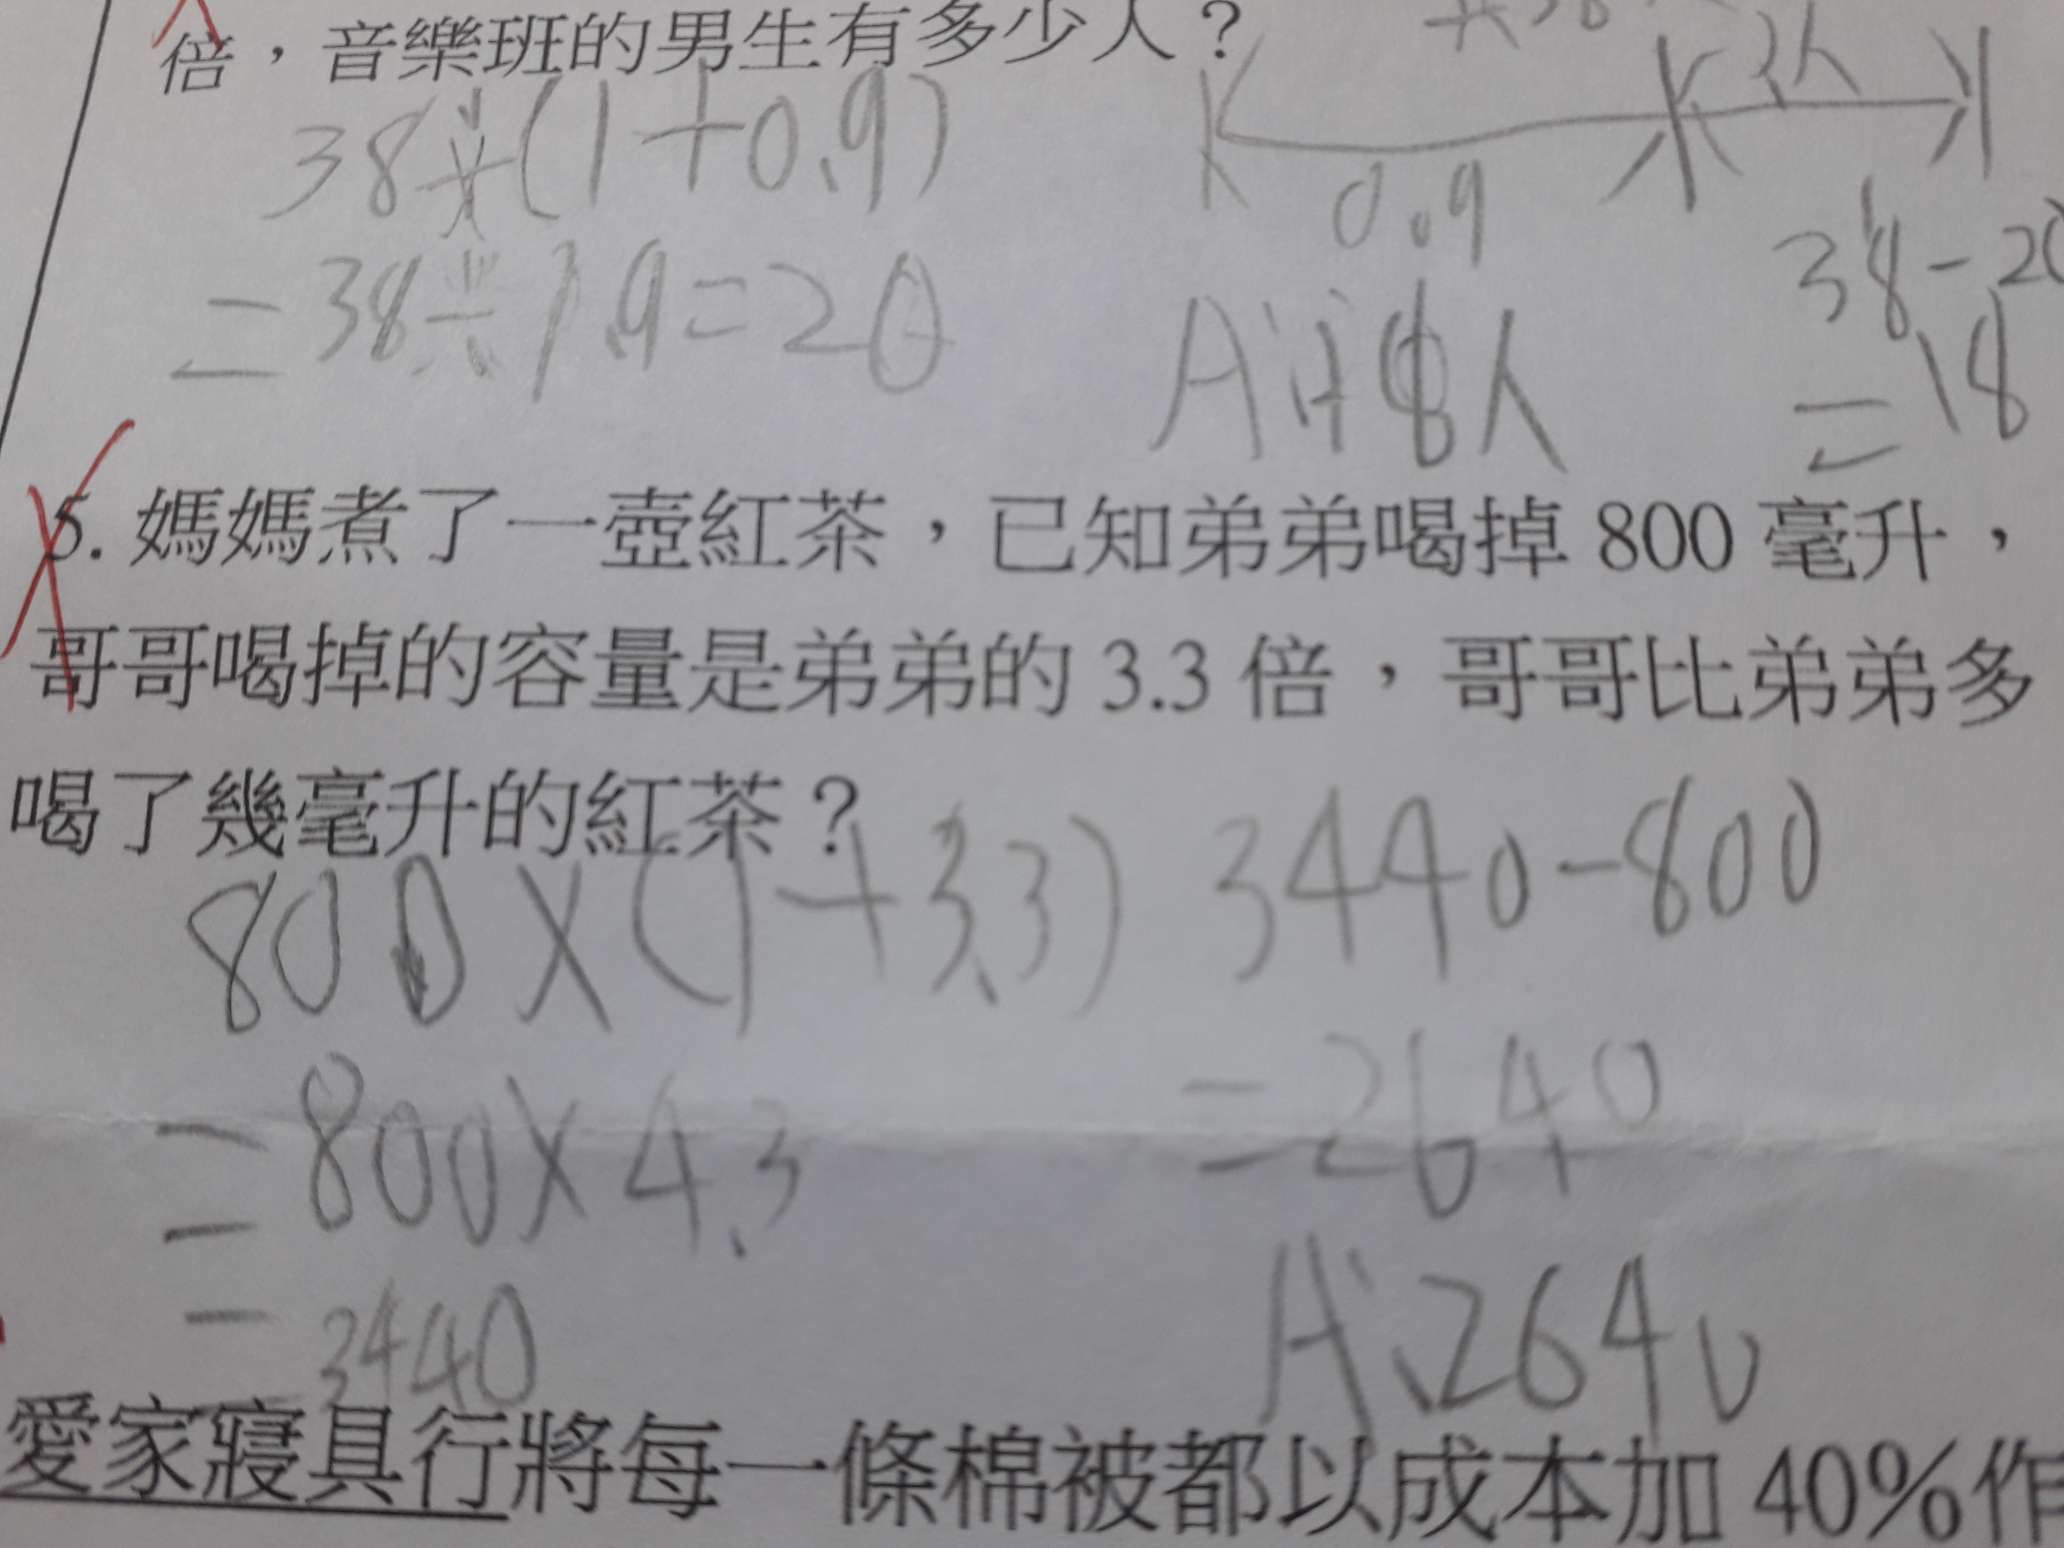 倍，音樂班的男生有多少人？
38÷(1+0.9)
=38÷1.9=20
3人
0.9
38-20
=18
A:18人
5. 媽媽煮了一壺紅茶，已知弟弟喝掉 800 毫升，
哥哥喝掉的容量是弟弟的 3.3 倍，哥哥比弟弟多
喝了幾毫升的紅茶？
800×(1+3.3)
=800×4.3
=3440
3440-800
=2640
A:2640
愛家寢具行將每一條棉被都以成本加 40%作